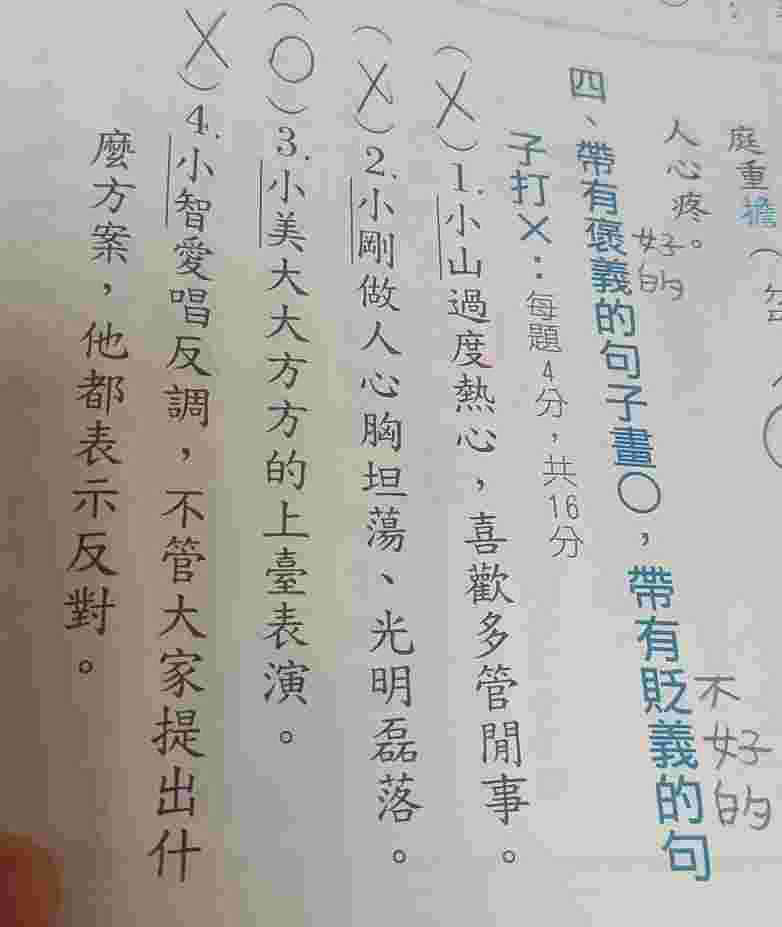 庭重擔（
人心疼。
四、帶有褒義的句子畫○，帶有貶義的句
好的
不好的
子打×：每題4分，共16分
（X）1.小山過度熱心，喜歡多管閒事。
（X）2.小剛做人心胸坦蕩、光明磊落。
（○）3.小美大大方方的上臺表演。
X）4.小智愛唱反調，不管大家提出什
麼方案，他都表示反對。